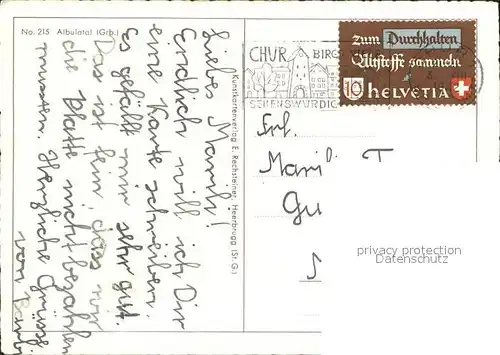 No. 215 Albulatal (Grb.)
Liebes Mamili!
Endlich will ich Dir
eine Karte schreiben.
Es gefällt mir sehr gut.
Das ist fein, dass wir
die Platte nicht bezahlen
mussten. Herzliche Grüsse
von
Kunstkartenverlag E. Rechsteiner, Heerbrugg (St. G.)
CHUR BIRGT
SEHENSWÜRDIG
zum Durchhalten
Altstoffe sammeln
10 HELVETIA
Frl.
T
privacy protection
DELCAMPE.NET